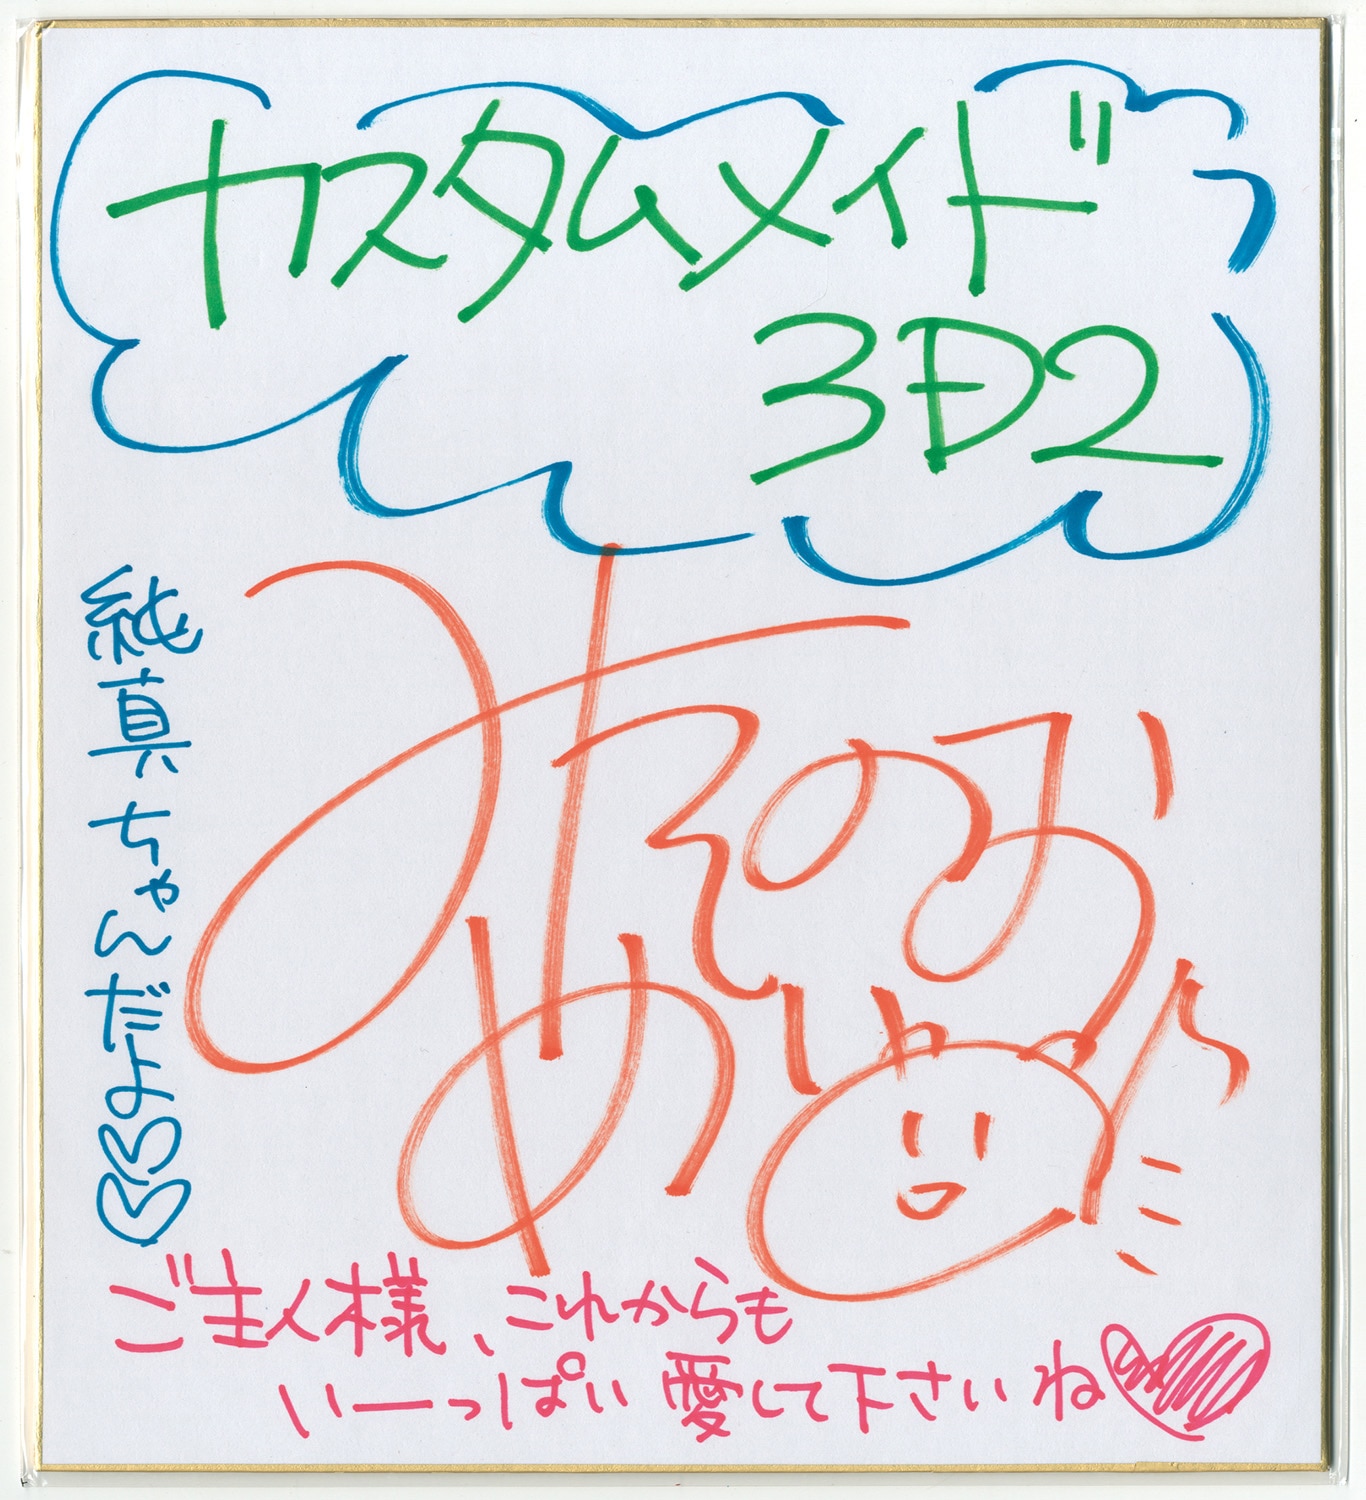 カスタムメイド
3D2
純真ちゃんだよ♡♡
ご主人様、これからも
いーっぱい愛して下さいね